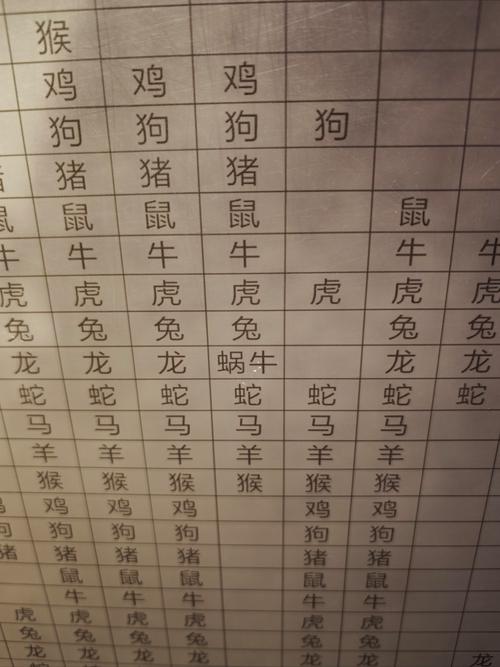 猴
鸡 鸡 鸡
狗 狗 狗 狗
猪 猪 猪 猪
鼠 鼠 鼠 鼠 鼠
牛 牛 牛 牛 牛 牛
虎 虎 虎 虎 虎 虎 虎
兔 兔 兔 兔 兔 兔
龙 龙 龙 蜗牛 龙 龙
蛇 蛇 蛇 蛇 蛇 蛇 蛇
马 马 马 马 马 马
羊 羊 羊 羊 羊 羊
猴 猴 猴 猴 猴 猴
鸡 鸡 鸡 鸡 鸡 鸡
狗 狗 狗 狗 狗 狗
猪 猪 猪 猪 猪 猪
鼠 鼠 鼠 鼠 鼠
牛 牛 牛 牛 牛
虎 虎 虎 虎 虎 虎
兔 兔 兔 兔 兔 兔
龙 龙 龙 龙 龙 龙 龙